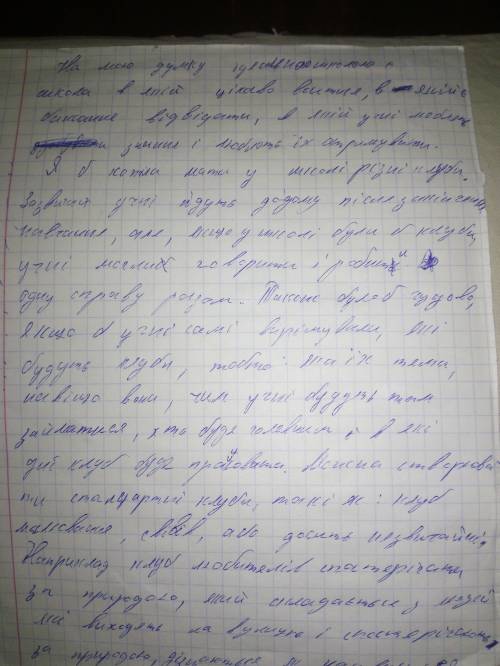 На мою думку ідеальною школою є
школа в якій цікаво вчитися, в якій є
бажання відвідати, в якій учні люблять
знання і люблять їх отримувати.
Я б хотіла мати у школі різні клуби.
Зазвичай учні йдуть додому після закінчення
навчання, але, якщо у школі були б клуби,
учні могли б говорити і робити
одну справу разом. Також було б чудово,
якщо б учні самі вирішували, які
будуть клуби, тобто: яка їх тема,
навіщо вони, чим учні будуть там
займатися, хто буде головним і в які
дні клуб буде працювати. Можна створювати
стандартні клуби, такі як: клуб
малювання, або досить незвичайні.
Наприклад клуб любителів спостерігати
за природою, який складається з людей
які виходять на вулицю і спостерігають
за природою,